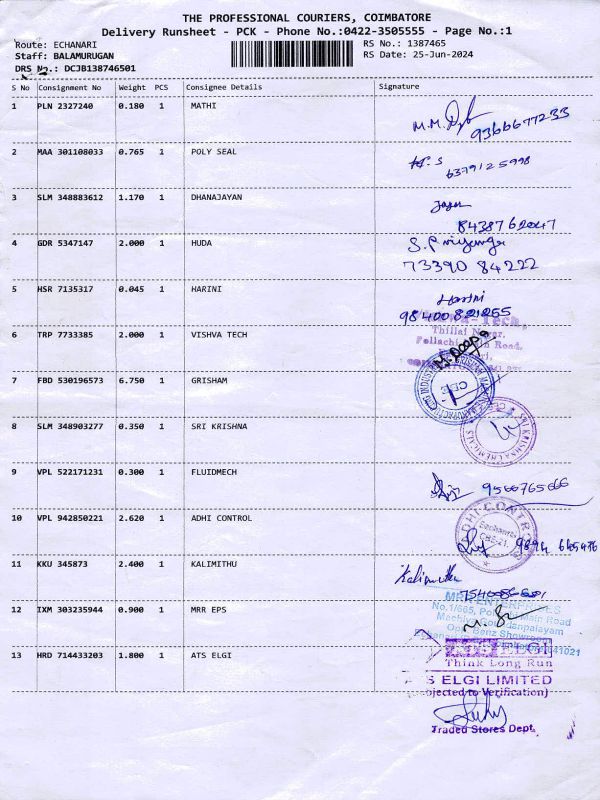 THE PROFESSIONAL COURIERS, COIMBATORE
Delivery Runsheet - PCK - Phone No.:0422-3505555 - Page No.:1
Route: ECHANARI
RS No.: 1387465
Staff: BALAMURUGAN
RS Date: 25-Jun-2024
DRS No.: DCJB138746501
S No Consignment No Weight PCS Consignee Details Signature
1 PLN 2327240 0.180 1 MATHI
9366677233
2 MAA 301108033 0.765 1 POLY SEAL
6379125998
3 SLM 348883612 1.170 1 DHANAJAYAN
4 GDR 5347147 2.000 1 HUDA
S. Priyanga
73390 84222
5 HSR 7135317 0.045 1 HARINI
Harini
98400821255
6 TRP 7733385 2.000 1 VISHVA TECH
Thillai Nagar,
Pollachi Main Road,
7 FBD 530196573 6.750 1 GRISHAM
CBE
8 SLM 348903277 0.350 1 SRI KRISHNA
SRI KRISHNA CHEMICALS
9 VPL 522171231 0.300 1 FLUIDMECH
9566765666
10 VPL 942850221 2.620 1 ADHI CONTROL
ADHI CONTROLS
Eachanari
CBE-21.
11 KKU 345873 2.400 1 KALIMITHU
Kalimuthu
12 IXM 303235944 0.900 1 MRR EPS
ENTERPRISES
No.1/665, Pollachi Main Road
Opp. Benz Showroom
641021
13 HRD 714433203 1.800 1 ATS ELGI
ATS ELGI
Think Long Run
ATS ELGI LIMITED
(Subjected to Verification)
Traded Stores Dept.